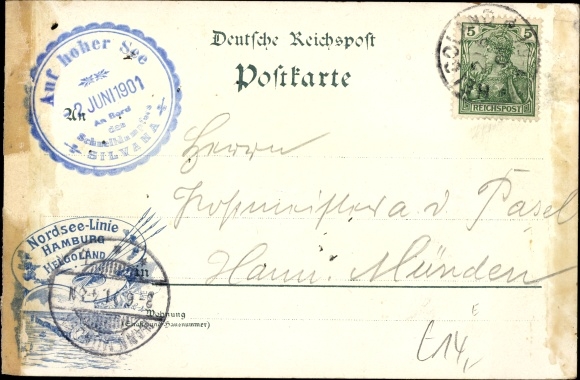 Deutsche Reichspost
Postkarte
5 5
REICHSPOST
Auf hoher See
2 JUNI 1901
An Bord
des
Schnelldampfers
SILVANA
An
Herrn
Postmeister a. d.
Hann. Münden
Nordsee-Linie
HAMBURG
HELGOLAND
in
Wohnung
(Straße und Hausnummer)
£14,-